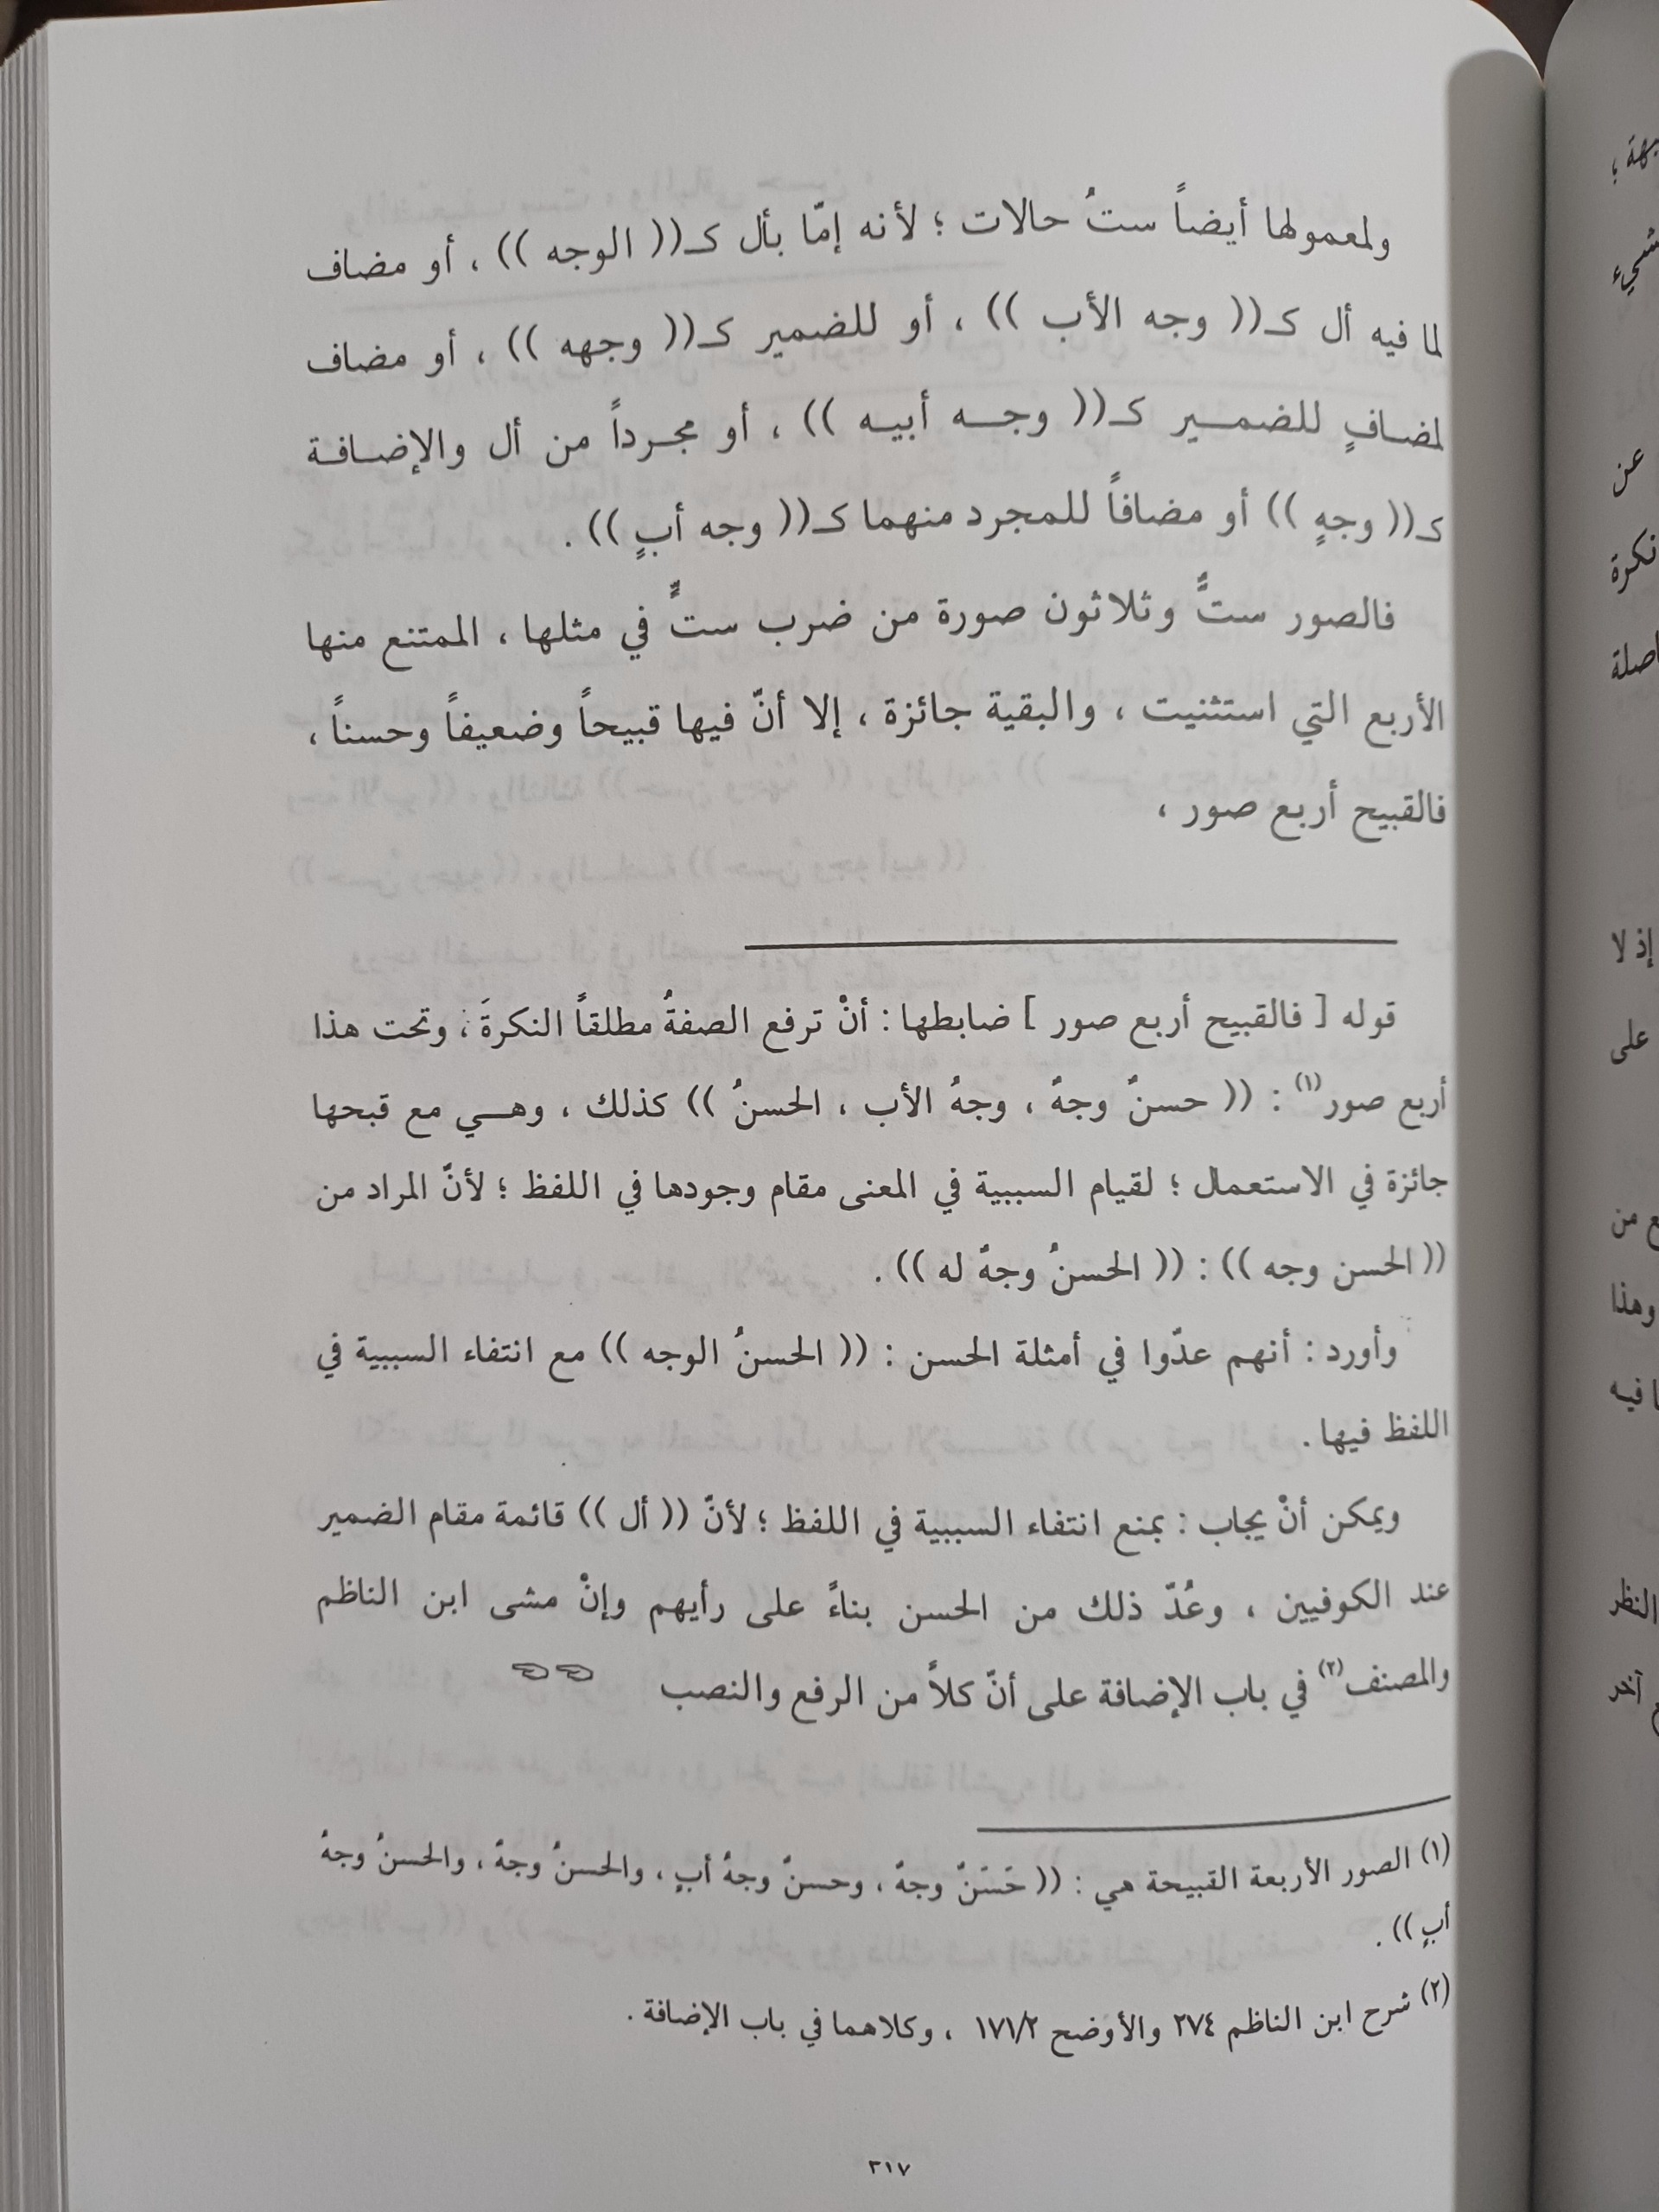 ولمعمولها أيضاً ستُ حالات ؛ لأنه إمّا بأل كـ(( الوجه )) ، أو مضاف
لما فيه أل كـ(( وجه الأب )) ، أو للضمير كـ(( وجهه )) ، أو مضاف
لمضافٍ للضمير كـ(( وجه أبيه )) ، أو مجرداً من أل والإضافة
كـ(( وجهٍ )) أو مضافاً للمجرد منهما كـ(( وجه أبٍ )) .
فالصور ستٌّ وثلاثون صورة من ضرب ستٍّ في مثلها ، الممتنع منها
الأربع التي استثنيت ، والبقية جائزة ، إلا أنّ فيها قبيحاً وضعيفاً وحسناً ،
فالقبيح أربع صور ،
قوله [ فالقبيح أربع صور ] ضابطها : أنْ ترفع الصفةُ مطلقاً النكرةَ ، وتحت هذا
أربع صور(١) : (( حسنٌ وجهٌ ، وجهُ الأب ، الحسنُ )) كذلك ، وهي مع قبحها
جائزة في الاستعمال ؛ لقيام السببية في المعنى مقام وجودها في اللفظ ؛ لأنّ المراد من
(( الحسن وجه )) : (( الحسنُ وجهٌ له )) .
وأورد : أنهم عدّوا في أمثلة الحسن : (( الحسنُ الوجه )) مع انتفاء السببية في
اللفظ فيها .
ويمكن أنْ يجاب : بمنع انتفاء السببية في اللفظ ؛ لأنّ (( أل )) قائمة مقام الضمير
عند الكوفيين ، وعُدّ ذلك من الحسن بناءً على رأيهم وإنْ مشى ابن الناظم
والمصنف(٢) في باب الإضافة على أنّ كلاً من الرفع والنصب
(١) الصور الأربعة القبيحة هي : (( حَسَنٌ وجهٌ ، وحسنٌ وجهُ أبٍ ، والحسنُ وجهٌ ، والحسنُ وجهُ
أبٍ )) .
(٢) شرح ابن الناظم ٢٧٤ والأوضح ١٧١/٢ ، وكلاهما في باب الإضافة .
٣١٧